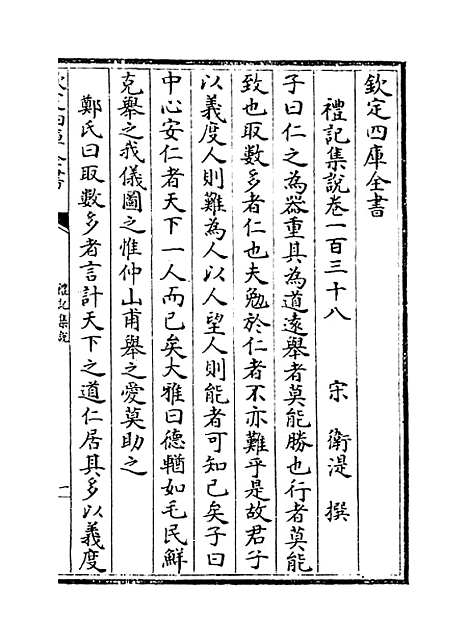 欽定四庫全書
禮記集說卷一百三十八
宋 衛湜 撰
子曰仁之為器重其為道逺舉者莫能勝也行者莫能
致也取數多者仁也夫勉於仁者不亦難乎是故君子
以義度人則難為人以人望人則能者可知已矣子曰
中心安仁者天下一人而已矣大雅曰德輶如毛民鮮
克舉之我儀圖之惟仲山甫舉之愛莫助之
鄭氏曰取數多者言計天下之道仁居其多以義度
欽定四庫全書
禮記集說
一